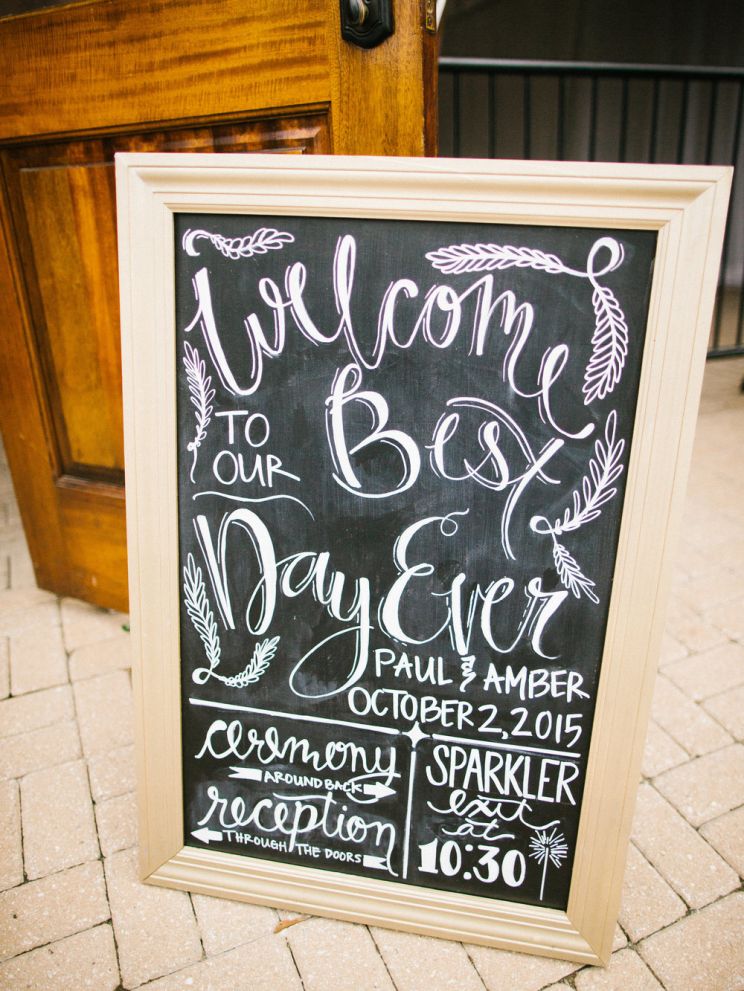 Welcome
TO OUR
Best
Day Ever
PAUL & AMBER
OCTOBER 2, 2015
ceremony
AROUND BACK
reception
THROUGH THE DOORS
SPARKLER
exit
at
10:30